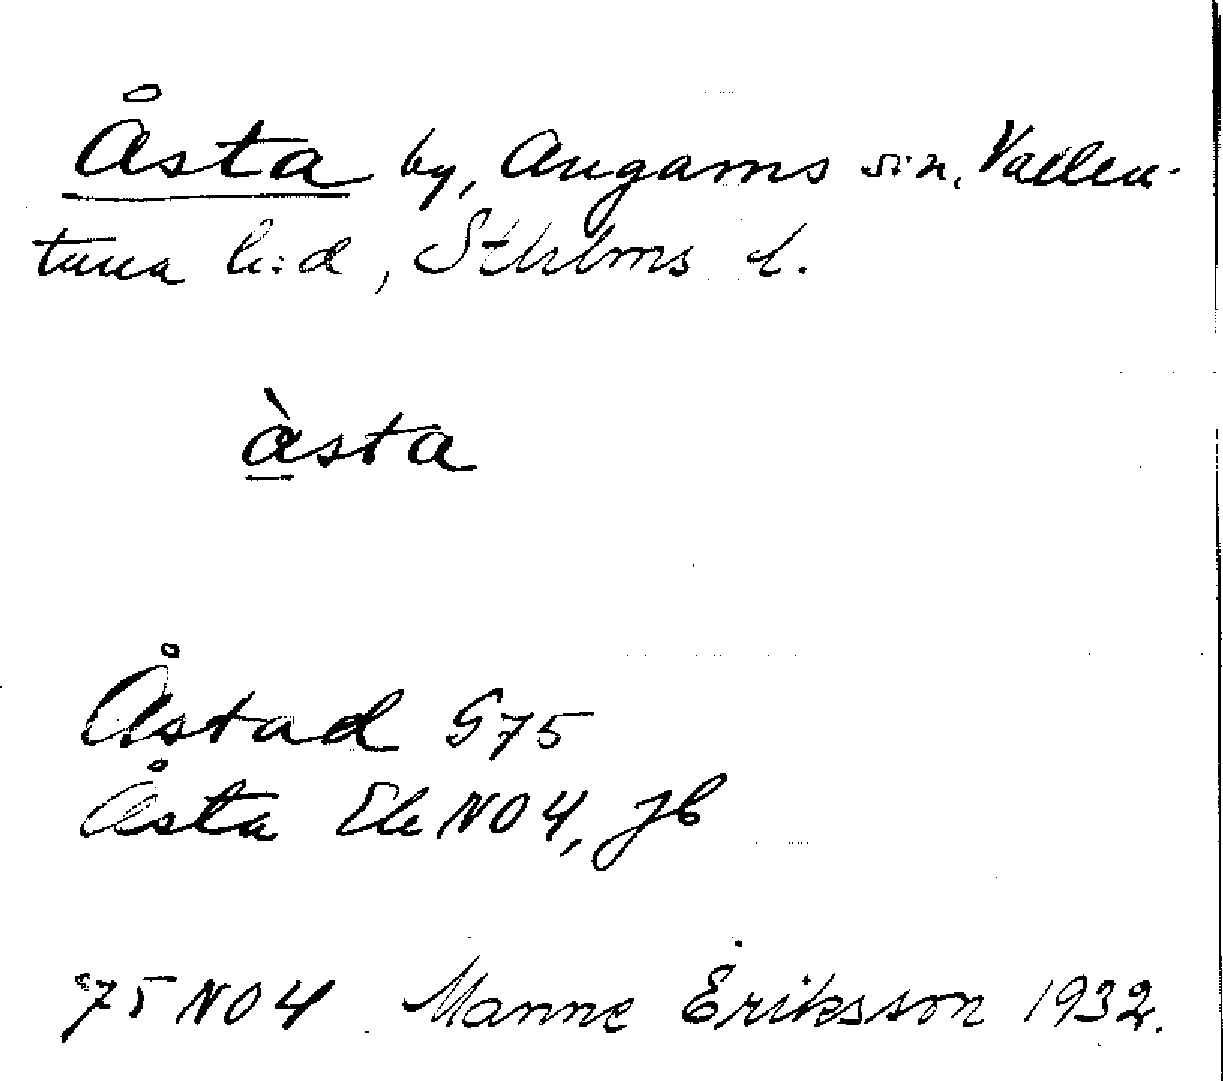 Åsta by, Angarns s:n, Vallen-
tuna h:d, Sthlms l.
àsta
Åstad G75
Åsta Ek NO4, Jb
75 NO4 Manne Eriksson 1932.